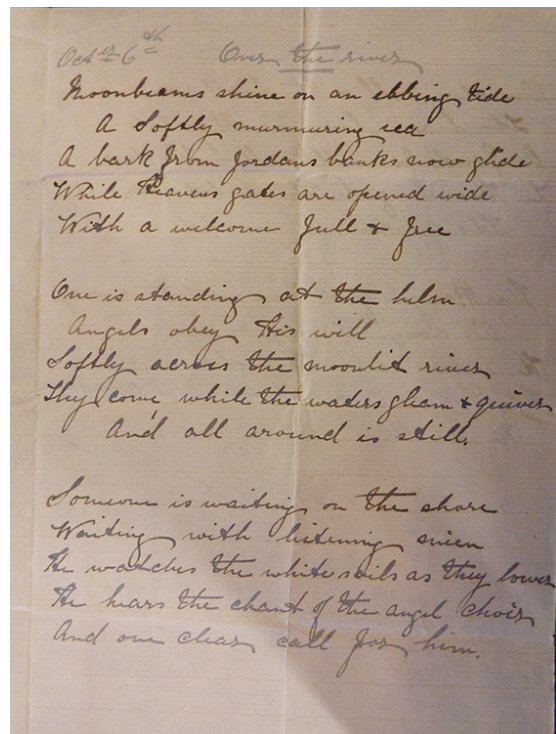 Oct 26th Over the river
Moonbeams shine on an ebbing tide
A Softly murmuring sea
A bark from Jordans banks now glide
While Heavens gates are opened wide
With a welcome full & free
One is standing at the helm
Angels obey His will
Softly across the moonlit river
They come while the waters gleam & quiver
And all around is still.
Someone is waiting on the shore
Waiting with listening mien
He watches the white sails as they lower
He hears the chant of the angel choir
And one clear call for him.